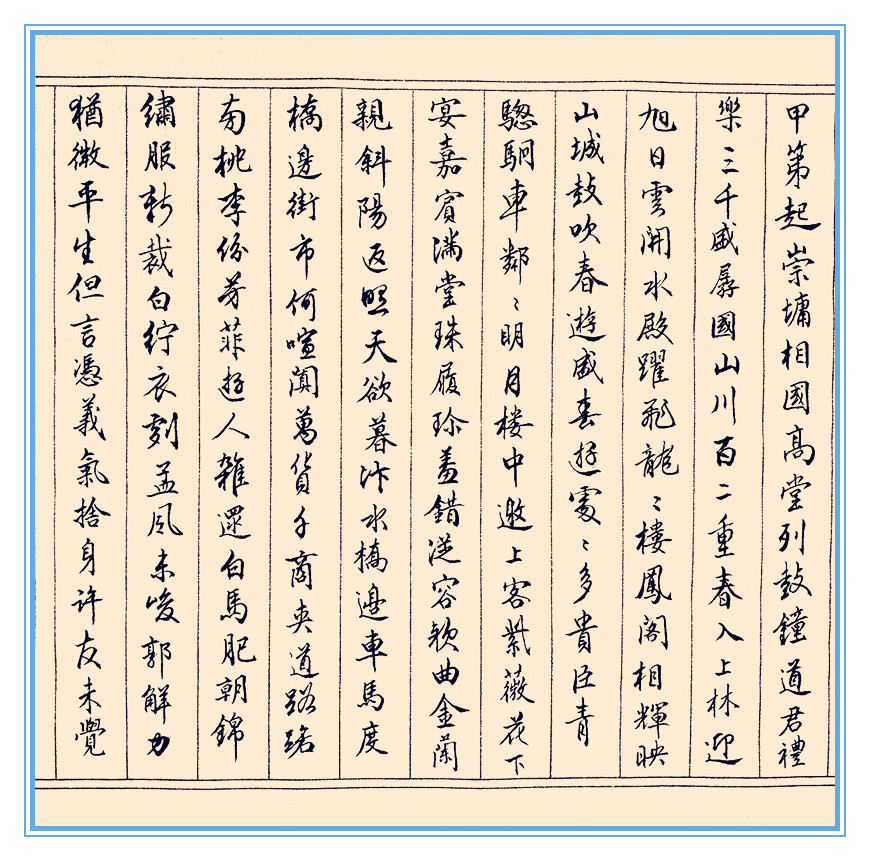 甲第起崇墉相國高堂列鼓鐘道君禮
樂三千盛孱國山川百二重春入上林迎
旭日雲開水殿躍飛龍〻樓鳳閣相輝映
山城鼓吹春遊盛春遊處〻多貴臣青
驄駉車鄰〻明月楼中邀上客紫薇花下
宴嘉賓滿堂珠履珍羞錯從容款曲金蘭
親斜陽返照天欲暮汴水橋邊車馬度
橋邊街市何喧闐萬貨千商夾道路踞
桃李紛芳菲遊人雜遝白馬肥朝錦
繡服新裁白紵衣劇孟風未峻郭解力
猶微平生但言憑義氣捨身許友未覺